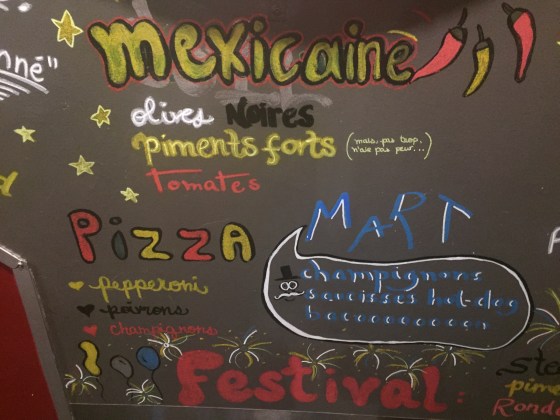 nné"
mexicaine
olives Noires
piments forts (mais, pas trop, n'aie pas peur...)
Tomates
PiZZA
pepperoni
poivrons
champignons
MART
champignons
saucisses hot-dog
baconooooooon
Festival:
pim
Rond